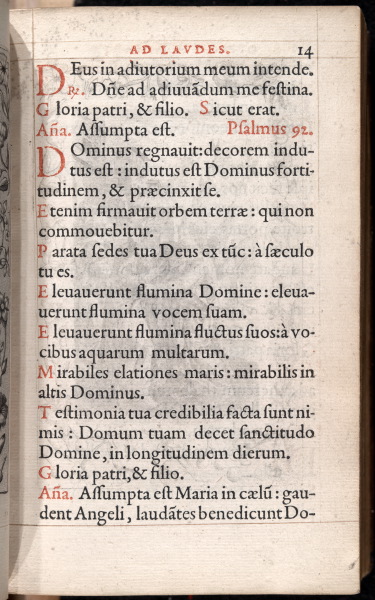 AD LAVDES. 14
DEus in adiutorium meum intende.
℞. Dñe ad adiuuãdum me festina.
Gloria patri, & filio. Sicut erat.
Aña. Assumpta est. Psalmus 92.
DOminus regnauit: decorem indu-
tus est: indutus est Dominus forti-
tudinem, & præcinxit se.
Etenim firmauit orbem terræ: qui non
commouebitur.
Parata sedes tua Deus ex tũc: à sæculo
tu es.
Eleuauerunt flumina Domine: eleua-
uerunt flumina vocem suam.
Eleuauerunt flumina fluctus suos: à vo-
cibus aquarum multarum.
Mirabiles elationes maris: mirabilis in
altis Dominus.
Testimonia tua credibilia facta sunt ni-
mis: Domum tuam decet sanctitudo
Domine, in longitudinem dierum.
Gloria patri, & filio.
Aña. Assumpta est Maria in cælũ: gau-
dent Angeli, laudãtes benedicunt Do-